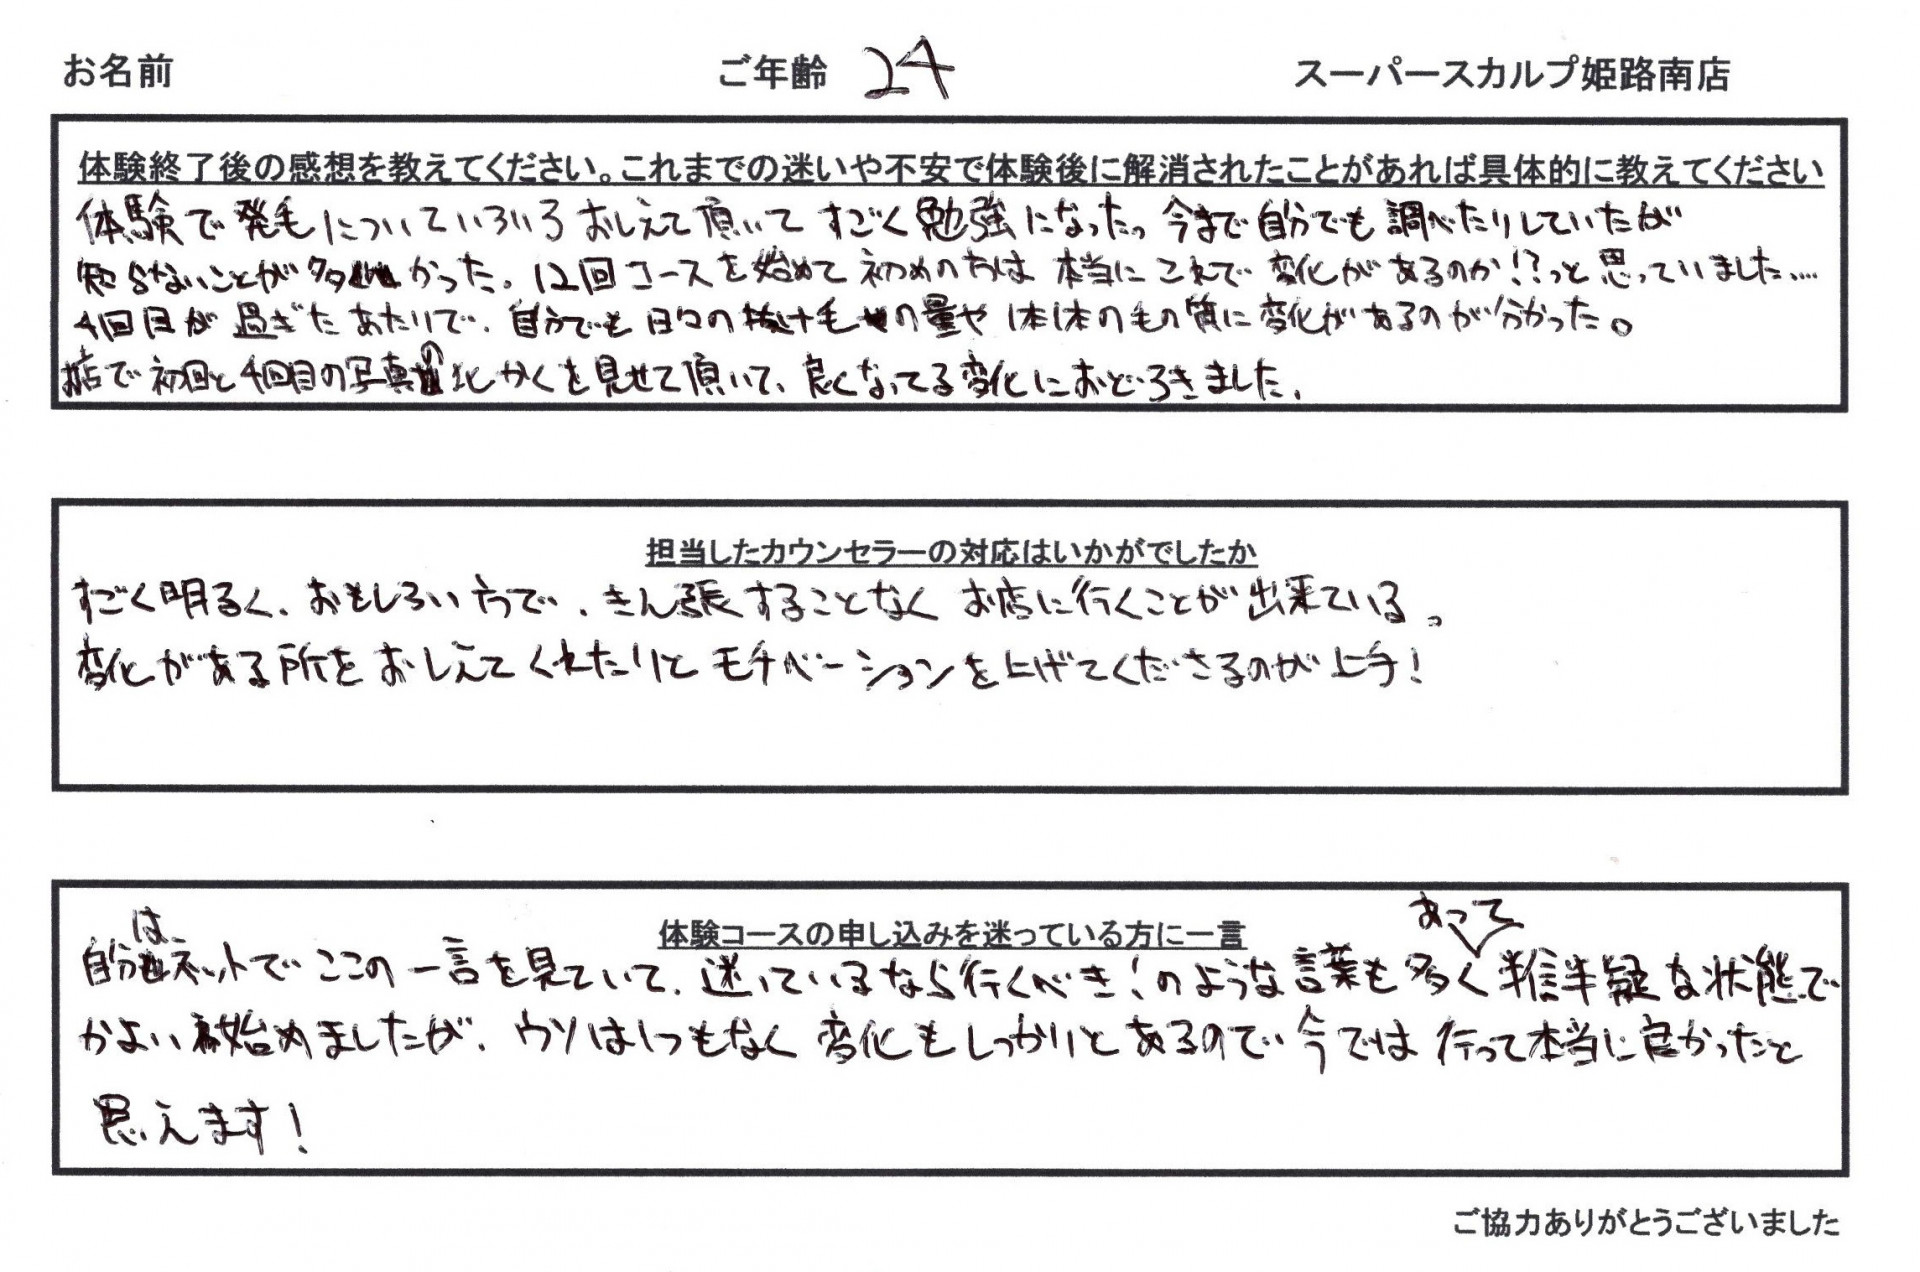 お名前 ご年齢 24 スーパースカルプ姫路南店
体験終了後の感想を教えてください。これまでの迷いや不安で体験後に解消されたことがあれば具体的に教えてください
体験で発毛についていろいろおしえて頂いてすごく勉強になった。今まで自分でも調べたりしていたが
知らないことが多かった。12回コースを始めて初めのうちは本当にこれで変化があるのか!?っと思っていました....
4回目が過ぎたあたりで、自分でも日々の抜け毛の量や1本1本の毛の質に変化があるのが分かった。
店で初回と4回目の写真のひかくを見せて頂いて、良くなってる変化におどろきました。
担当したカウンセラーの対応はいかがでしたか
すごく明るく、おもしろい方で、きん張することなくお店に行くことが出来ている。
変化がある所をおしえてくれたりとモチベーションを上げてくださるのが上手!
体験コースの申し込みを迷っている方に一言
自分はネットでここの一言を見ていて、迷っているなら行くべき!のような言葉も多くあって半信半疑な状態で
かよい始めましたが、ウソは1つもなく変化もしっかりとあるので今では行って本当に良かったと
思えます!
ご協力ありがとうございました